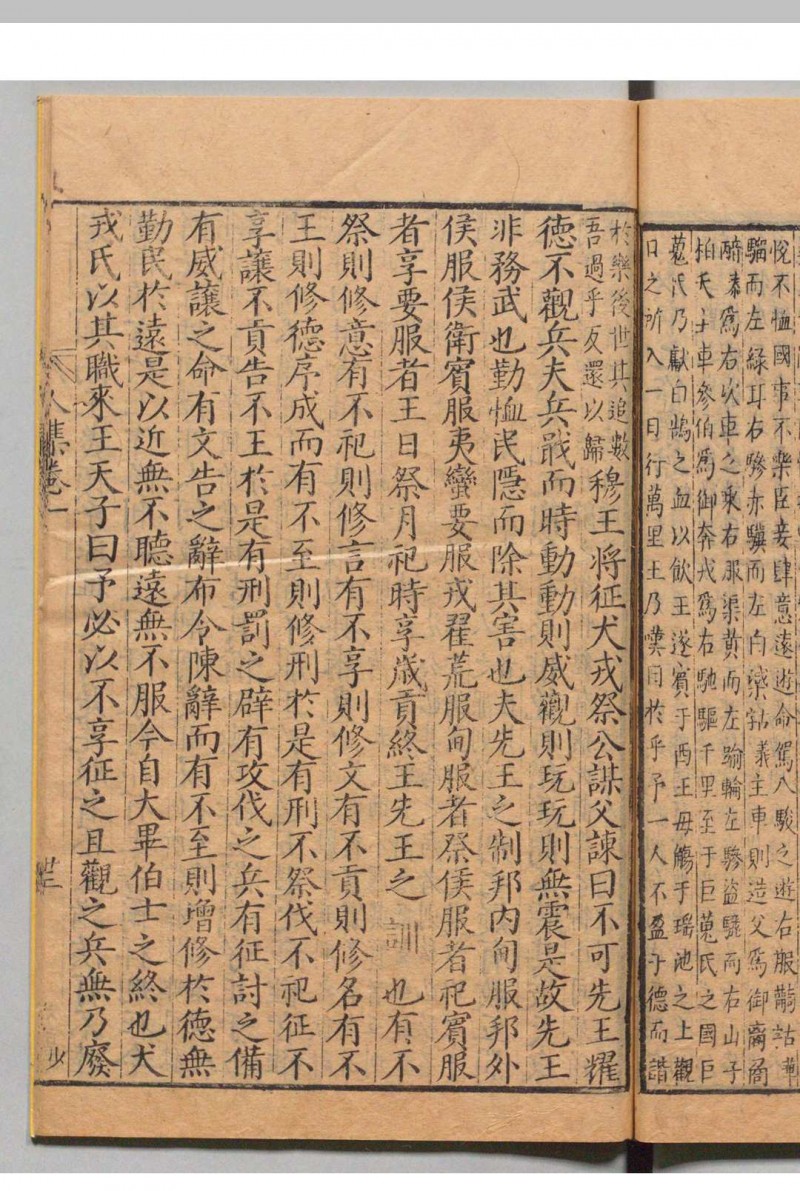 悅不恤國事不樂臣妾肆意遠遊命駕八駿之遊右服
騮而左綠耳右驂赤驥而左白主車則造父爲御
爲右次車之乘右服渠黃而左踰輪左驂盜驪而右山子
柏夭主車參伯爲御奔戎爲右馳驅千里至于巨蒐氏之國巨
蒐氏乃獻白鵠之血以飲王遂賓于西王母觴于瑤池之上觀
日之所入一日行萬里王乃嘆曰於乎予一人不盈于德而諧
於樂後世其追數
吾過乎反還以歸
穆王將征犬戎祭公謀父諫曰不可先王耀
德不觀兵夫兵戢而時動動則威觀則玩玩則無震是故先王
非務武也勤恤民隱而除其害也夫先王之制邦内甸服邦外
侯服侯衛賓服夷蠻要服戎翟荒服甸服者祭侯服者祀賓服
者享要服者王日祭月祀時享歲貢終王先王之訓也有不
祭則修意有不祀則修言有不享則修文有不貢則修名有不
王則修德序成而有不至則修刑於是有刑不祭伐不祀征不
享讓不貢告不王於是有刑罰之辟有攻伐之兵有征討之備
有威讓之命有文告之辭布令陳辭而有不至則增修於德無
勤民於遠是以近無不聽遠無不服今自大畢伯士之終也犬
戎氏以其職來王天子曰予必以不享征之且觀之兵無乃廢
八集卷一
廿三
少